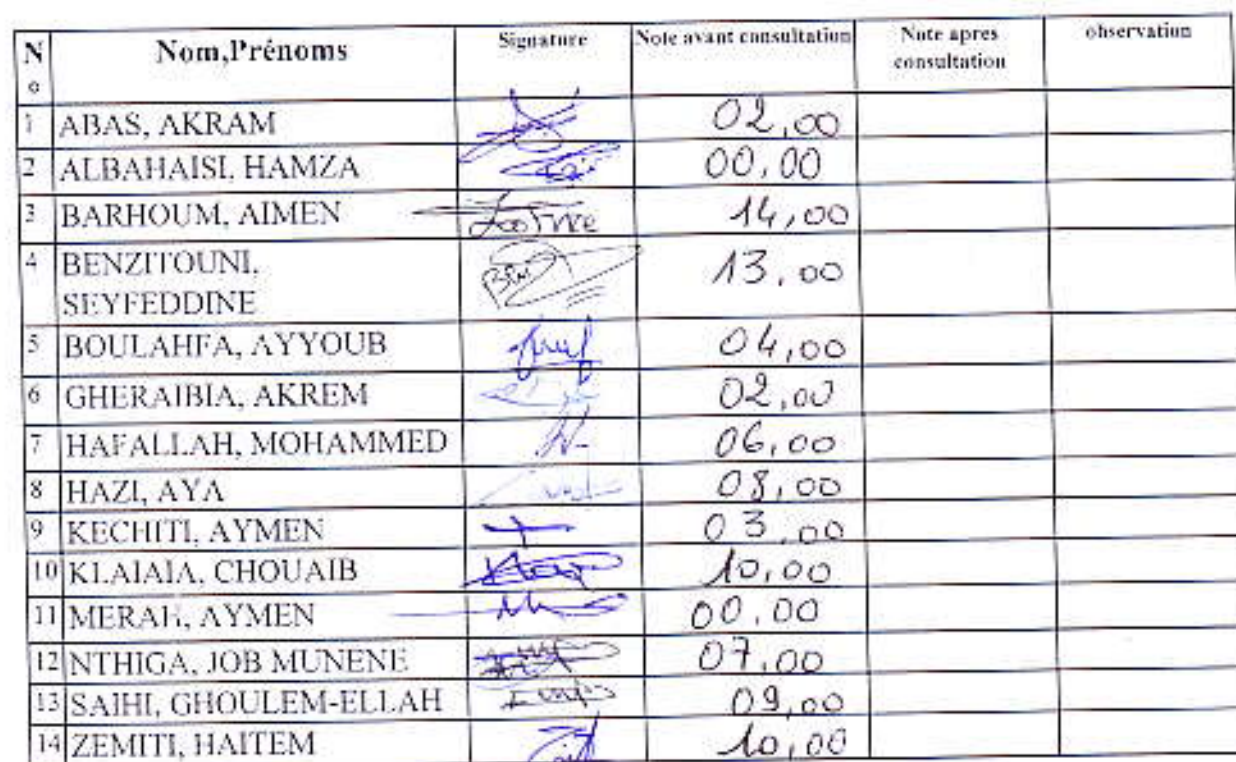 N° Nom,Prénoms Signature Note avant consultation Note apres consultation observation
1 ABAS, AKRAM 02,00
2 ALBAHAISI, HAMZA 00,00
3 BARHOUM, AIMEN 14,00
4 BENZITOUNI, SEYFEDDINE 13,00
5 BOULAHFA, AYYOUB 04,00
6 GHERAIBIA, AKREM 02,00
7 HAFALLAH, MOHAMMED 06,00
8 HAZI, AYA 08,00
9 KECHITI, AYMEN 03,00
10 KLAIAIA, CHOUAIB 10,00
11 MERAH, AYMEN 00,00
12 NTHIGA, JOB MUNENE 07,00
13 SAIHI, GHOULEM-ELLAH 09,00
14 ZEMITI, HAITEM 10,00